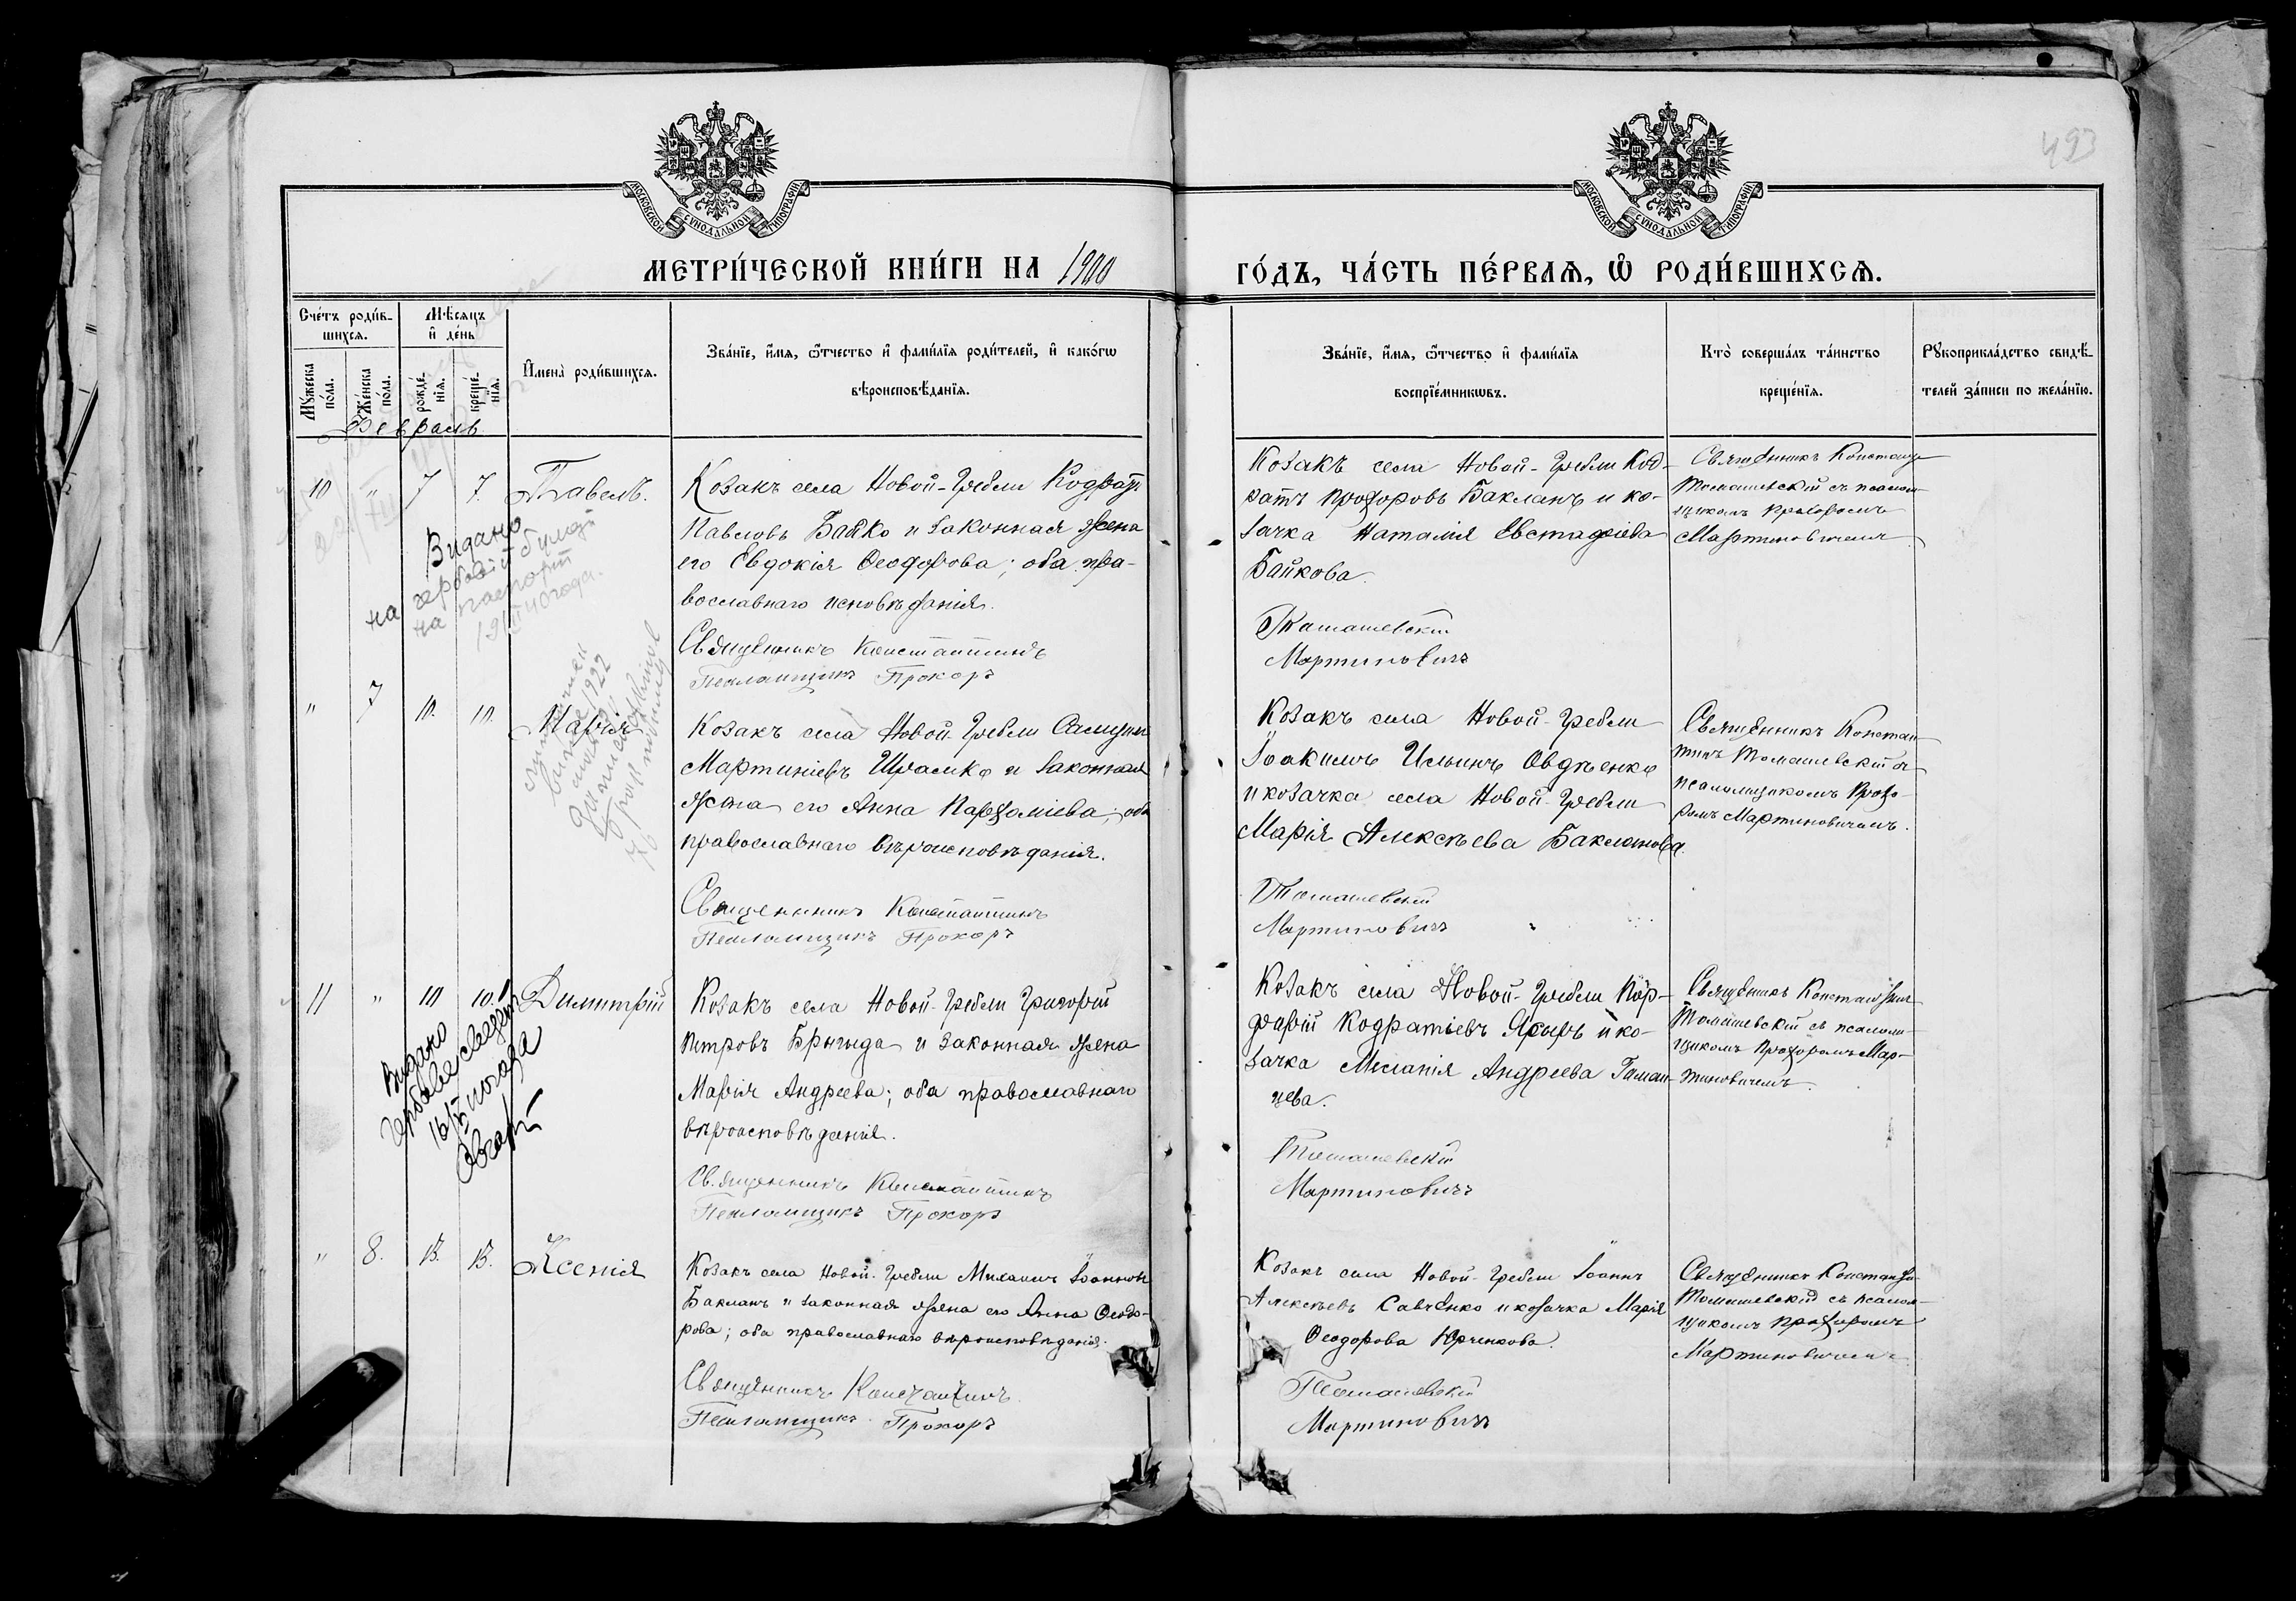 493
МОСКОВСКОЙ СѴНОДАЛЬНОЙ ТИПОГРАФІИ
МОСКОВСКОЙ СѴНОДАЛЬНОЙ ТИПОГРАФІИ
МЕТРИ́ЧЕСКОЙ КНИ́ГИ НА 1900
ГО́ДЪ, ЧА́СТЬ ПЕ́РВАѦ, Ѡ҆ РОДИ́ВШИХСѦ.
Сче́тъ роди́в-
шихсѧ.
Мѣ́сѧцъ
и҆ де́нь
Мꙋ́жеска по́ла.
Же́нска по́ла.
рожде́-
нїѧ.
креще́-
нїѧ.
И҆мена̀ роди́вшихсѧ.
Зва́нїе, и҆́мѧ, ѻ҆́тчество и҆ фами́лїѧ роди́телей, и҆ како́гѡ
вѣроисповѣ́данїѧ.
Зва́нїе, и҆́мѧ, ѻ҆́тчество и҆ фами́лїѧ
воспрїе́мникѡвъ.
Кто̀ соверша́лъ та́инство
креще́нїѧ.
Рꙋкоприкла́дство свидѣ́-
телей за́писи по жела́нїю.
Февраль
10 " 7 7. Павелъ.
Козакъ села Новой-Гребли Кодратъ
Павловъ Байко и законная жена
его Евдокія Ѳеодорова; оба пра-
вославнаго исповѣданія.
Священникъ Константинъ
Псаломщикъ Прохоръ
Козакъ села Новой-Гребли Код-
ратъ Прохоровъ Бакланъ и ко-
зачка Наталія Евстафіева
Байкова.
Томашевскій
Мартиновичъ
Священникъ Константинъ
Томашевскій съ псалом-
щикомъ Прохоромъ
Мартиновичемъ
Видано
на
на паспорт
40 года.
" 7 10. 10. Марія
Козакъ села Новой-Гребли
Мартиніевъ Шрамко и законная
жена его Анна Парѳеміева; оба
православнаго вѣроисповѣданія.
Священникъ Константинъ
Псаломщикъ Прохоръ
Козакъ села Новой-Гребли
Іоакимъ Ильинъ Овдѣенко
и козачка села Новой-Гребли
Марія Алексѣева Бакланова.
Томашевскій
Мартиновичъ
Священникъ Констан-
тинъ Томашевскій съ
псаломщикомъ Прохо-
ромъ Мартиновичемъ.
11 " 10 10. Димитрій
Козакъ села Новой-Гребли Григорій
Петровъ Брытыда и законная жена
Марія Андреева; оба православнаго
вѣроисповѣданія.
Священникъ Константинъ
Псаломщикъ Прохоръ
Козакъ села Новой-Гребли Пор-
фирій Кодратіевъ Ясыръ и ко-
зачка Меланія Андреева Гаман-
цева.
Томашевскій
Мартиновичъ
Священникъ Константинъ
Томашевскій съ псалом-
щикомъ Прохоромъ Мар-
тиновичемъ.
Видано
40 года
" 8. 15. 15. Ксенія
Козакъ села Новой-Гребли Михаилъ Іоанновъ
Бакланъ и законная жена его Анна Ѳеодо-
рова; оба православнаго вѣроисповѣданія.
Священникъ Константинъ
Псаломщикъ Прохоръ
Козакъ села Новой-Гребли Іоаннъ
Алексѣевъ Савченко и козачка Марія
Ѳеодорова Юрченкова.
Томашевскій
Мартиновичъ
Священникъ Константинъ
Томашевскій съ псалом-
щикомъ Прохоромъ
Мартиновичемъ